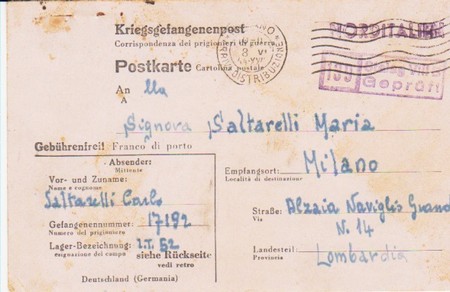 Kriegsgefangenenpost
NORDITALIEN
Corrispondenza dei prigionieri di guerra
Postkarte Cartolina postale
DISTRIBUZIONE
Geprüft
An lla
A
Signora Saltarelli Maria
Gebührenfrei! Franco di porto
Milano
Absender:
Mittente
Empfangsort:
Località di destinazione
Vor- und Zuname:
Nome e cognome
Saltarelli Carlo
Straße: Alzaia Naviglio Grande
Via
N. 14
Gefangenennummer: 17192
Numero del prigioniero
Lager-Bezeichnung: I.T. 52
siehe Rückseite
vedi retro
Landesteil:
Provincia
Lombardia
Deutschland (Germania)